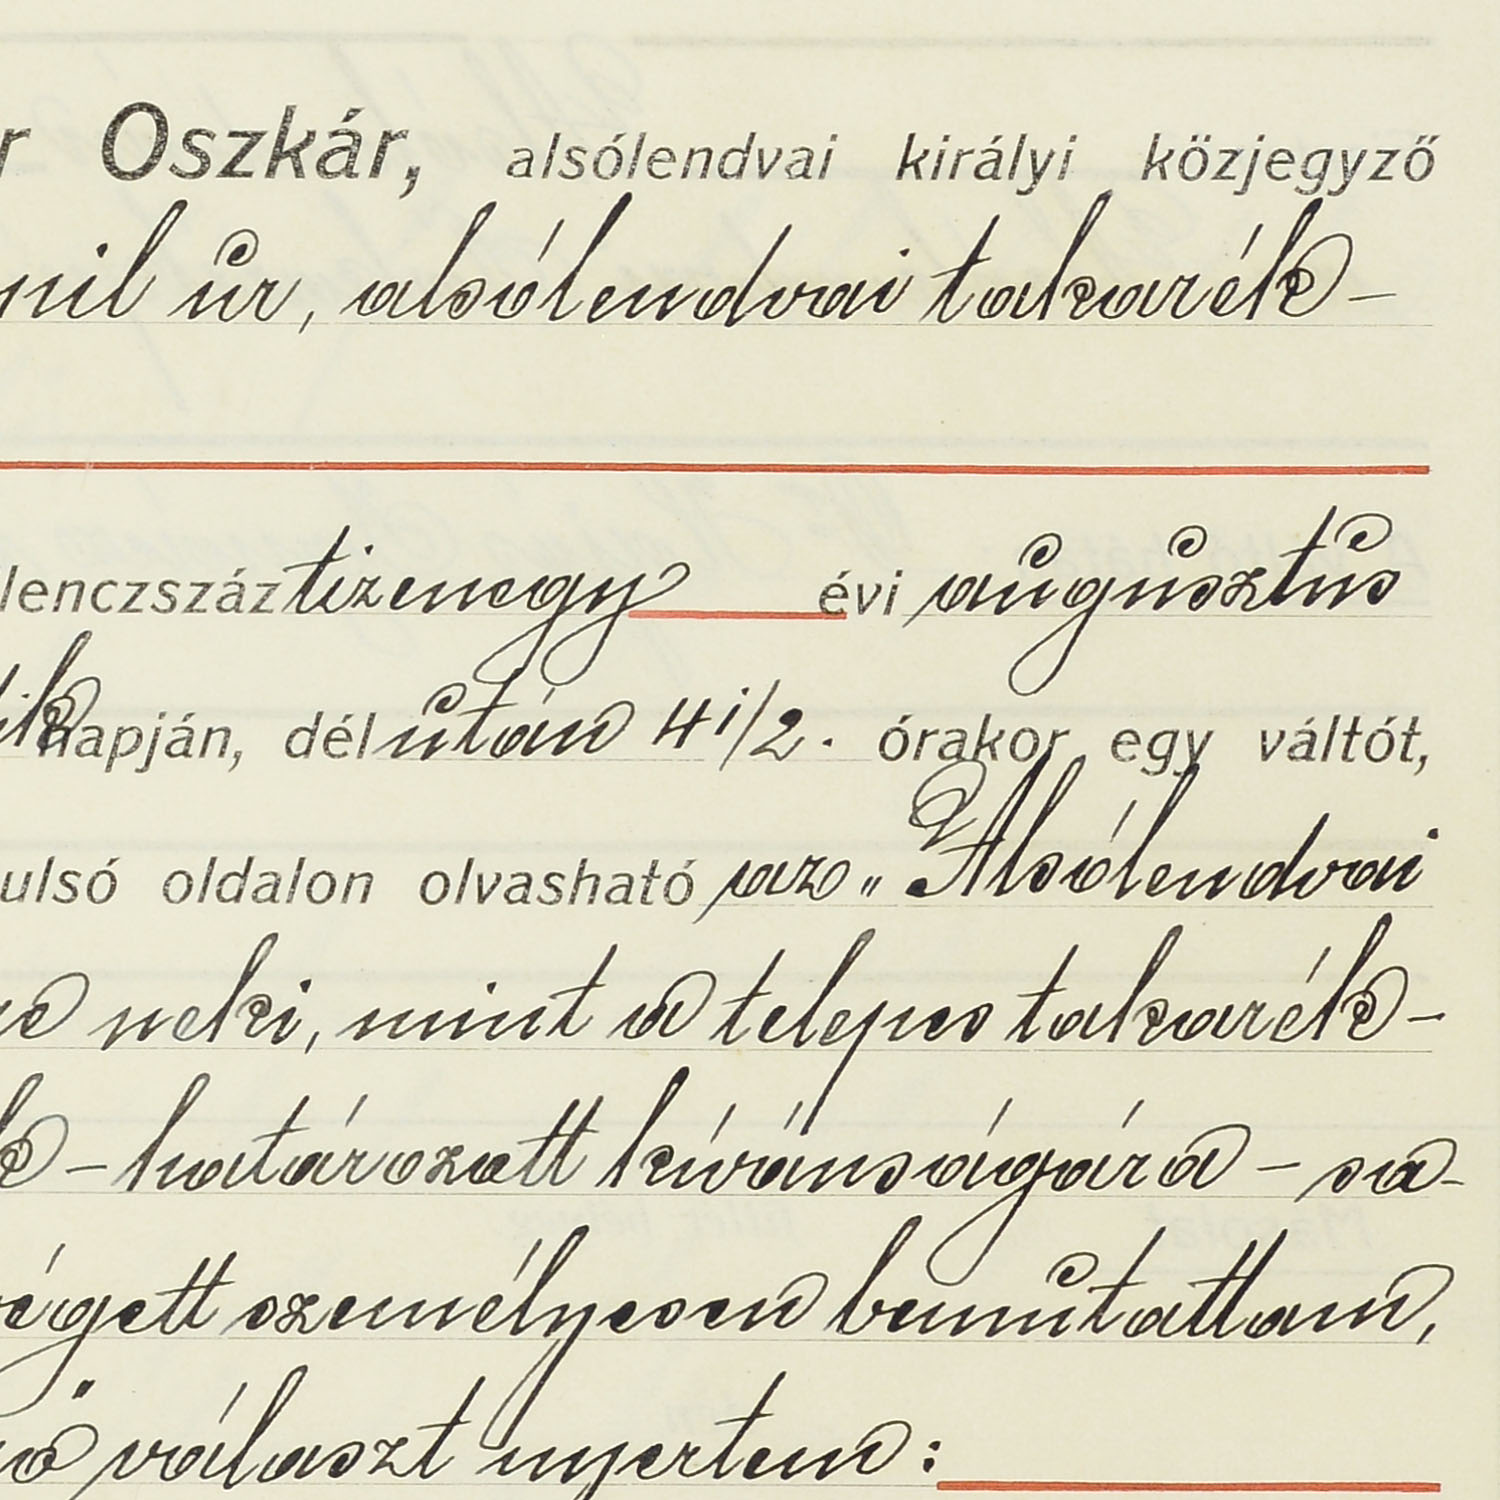 r Oszkár, alsólendvai királyi közjegyző
nil úr, alsólendvai takarék-
lenczszáztizenegy évi augusztus
ik napján, délután 4 1/2. órakor egy váltót,
ulsó oldalon olvasható az „Alsólendvai
neki, mint a telepes takarék-
k - határozott kívánságára - sa-
végett személyesen bemutattam,
ő választ nyertem: